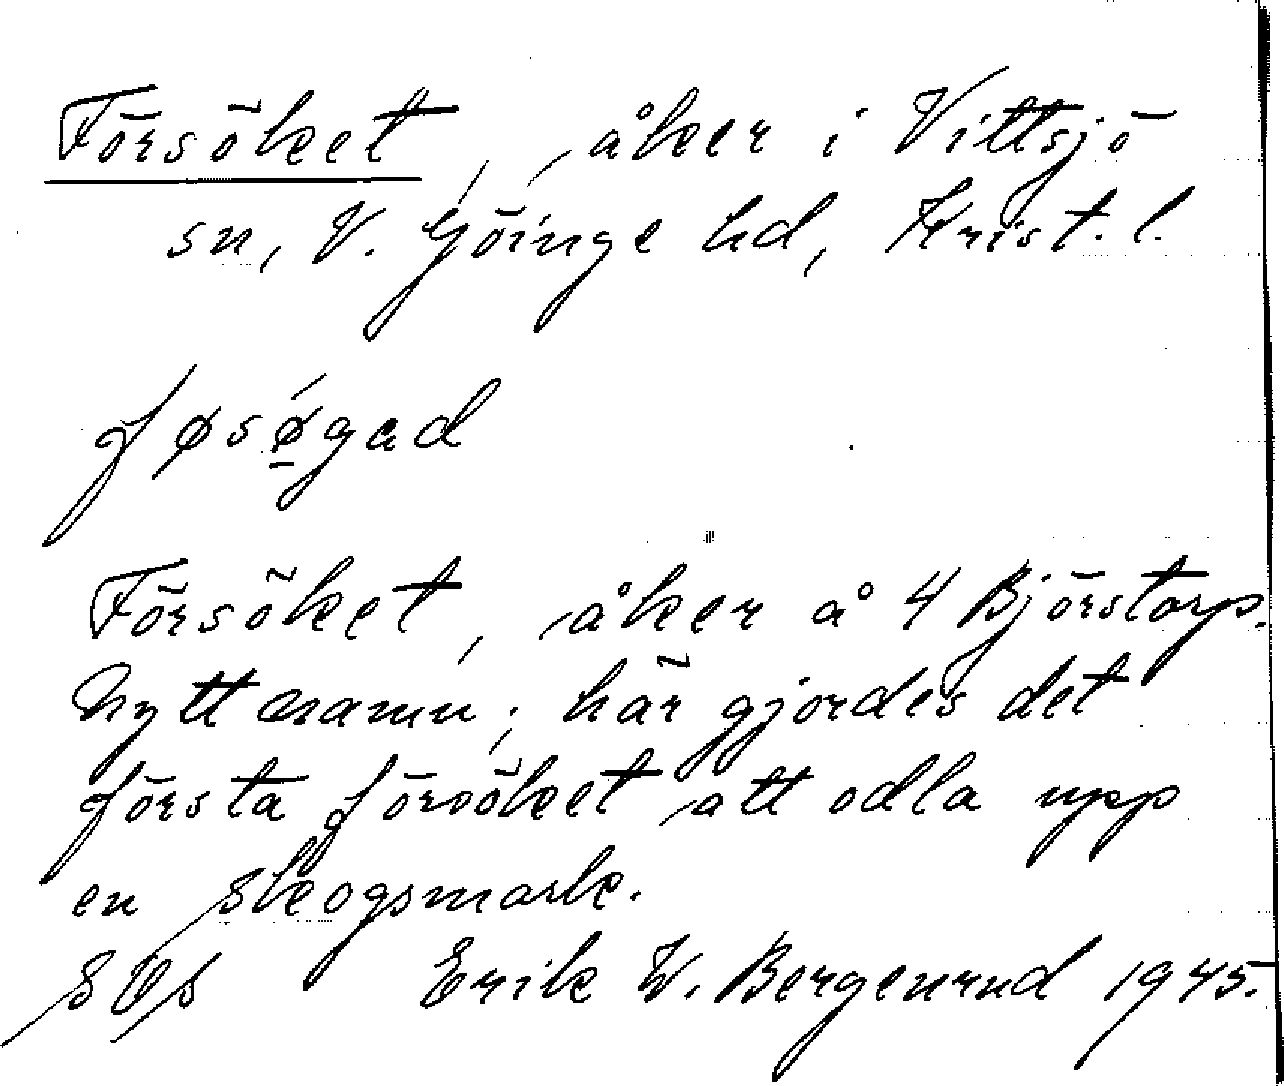 Försöket, åker i Vittsjö
sn, V. Göinge hd, Krist. l.
føsǿ̱gad
Försöket, åker å 4 Björstorp.
Nytt namn; här gjordes det
första försöket att odla upp
en skogsmark.
Erik W. Bergenrud 1945.